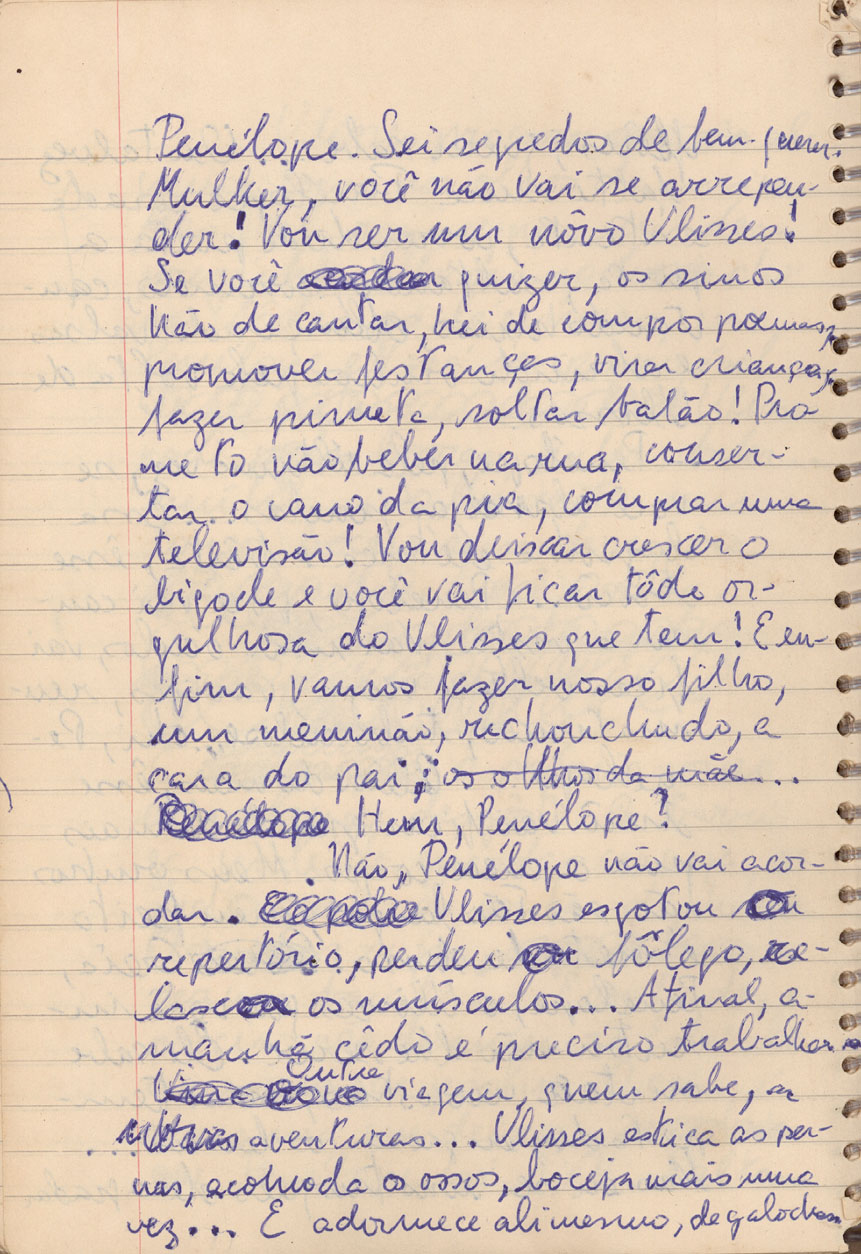 Penélope. Sei segredos de bem-querer.
Mulher, você não vai se arrepen-
der! Vou ser um nôvo Ulisses!
Se você quizer, os sinos
hão de cantar, hei de compor poemas,
promover festanças, virar criança,
fazer pirueta, soltar balão! Pro-
meto não beber na rua, conser-
tar o cano da pia, comprar uma
televisão! Vou deixar crescer o
bigode e você vai ficar tôda or-
gulhosa do Ulisses que tem! E en-
fim, vamos fazer nosso filho,
um meninão, rechonchudo, a
cara do pai; os olhos da mãe...
Penélope Hem, Penélope?
Não, Penélope não vai acor-
dar. Ulisses esgotou
repertório, perdeu fôlego, re-
laxou os músculos... Afinal, a-
manhã cêdo é preciso trabalhar.
Outra
viagem, quem sabe,
aventuras... Ulisses estica as per-
nas, acomoda os ossos, boceja mais uma
vez... E adormece ali mesmo, de galochas